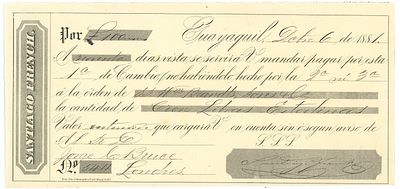 SANTIAGO FREYCIL
Por £100 Guayaquil, Octre 6 de 1881.
A noventa dias vista se servirá V. mandar pagar por esta
1ª de Cambio, no habiéndolo hecho por la 2ª ni 3ª
á la órden de
la cantidad de Cien Libras Esterlinas
Valor que cargará V. en cuenta sin ó segun aviso de
Al Sr. S. S. S.
Jorge C. Bruce
Nº Londres